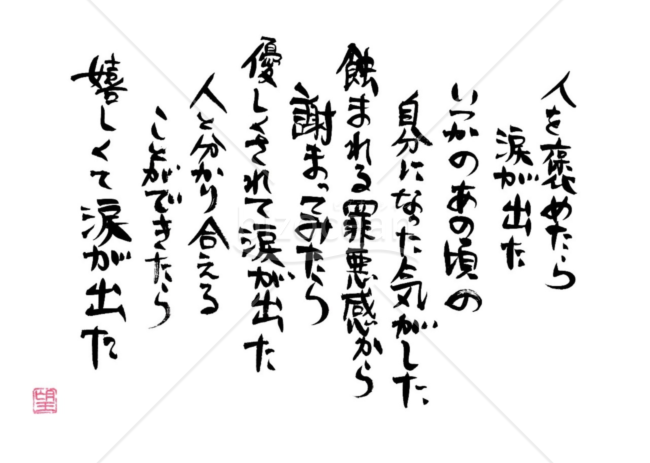 人を褒めたら
涙が出た
いつかのあの頃の
自分になった気がした
蝕まれる罪悪感から
謝まってみたら
優しくされて涙が出た
人と分かり合える
ことができたら
嬉しくて涙が出た
望
bizocean